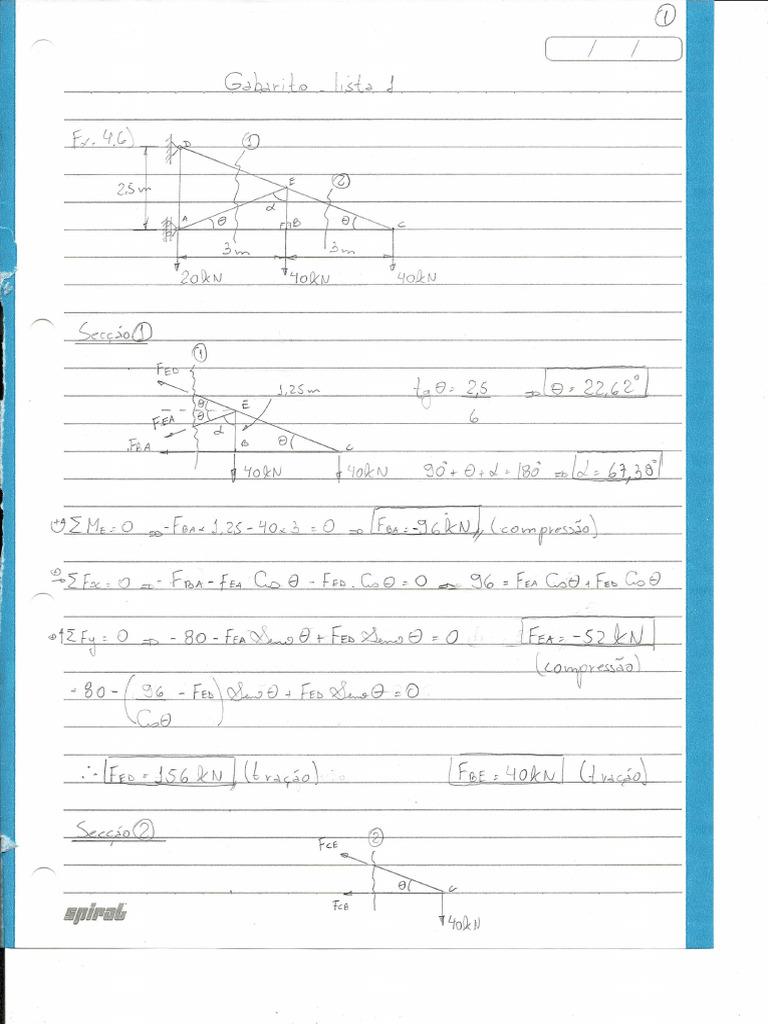 1
/ /
Gabarito - lista 1
Ex. 4.6)
D
1
2,5m
E
2
α
A
θ
B
θ
C
3m
3m
20kN
40kN
40kN
Secção 1
1
FED
θ
E
1,25m
tgθ = 2,5 / 6 ⇒ θ = 22,62°
FEA
θ
α
FBA
B
θ
C
40kN
40kN
90° + θ + α = 180° ⇒ α = 67,38°
(+ ΣME = 0 ⇒ -FBA x 1,25 - 40 x 3 = 0 ⇒ FBA = -96kN // (compressão)
⊕→ ΣFx = 0 ⇒ -FBA - FEA Cosθ - FED . Cosθ = 0 ⇒ 96 = FEA Cosθ + FED Cosθ
⊕↑ ΣFy = 0 ⇒ -80 - FEA Senoθ + FED Senoθ = 0
FEA = -52kN
(compressão)
-80 - (96 / Cosθ - FED) Senoθ + FED Senoθ = 0
∴ FED = 156kN (tração)
FBE = 40kN (tração)
Secção 2
2
FCE
θ
C
FCB
40kN
spiral